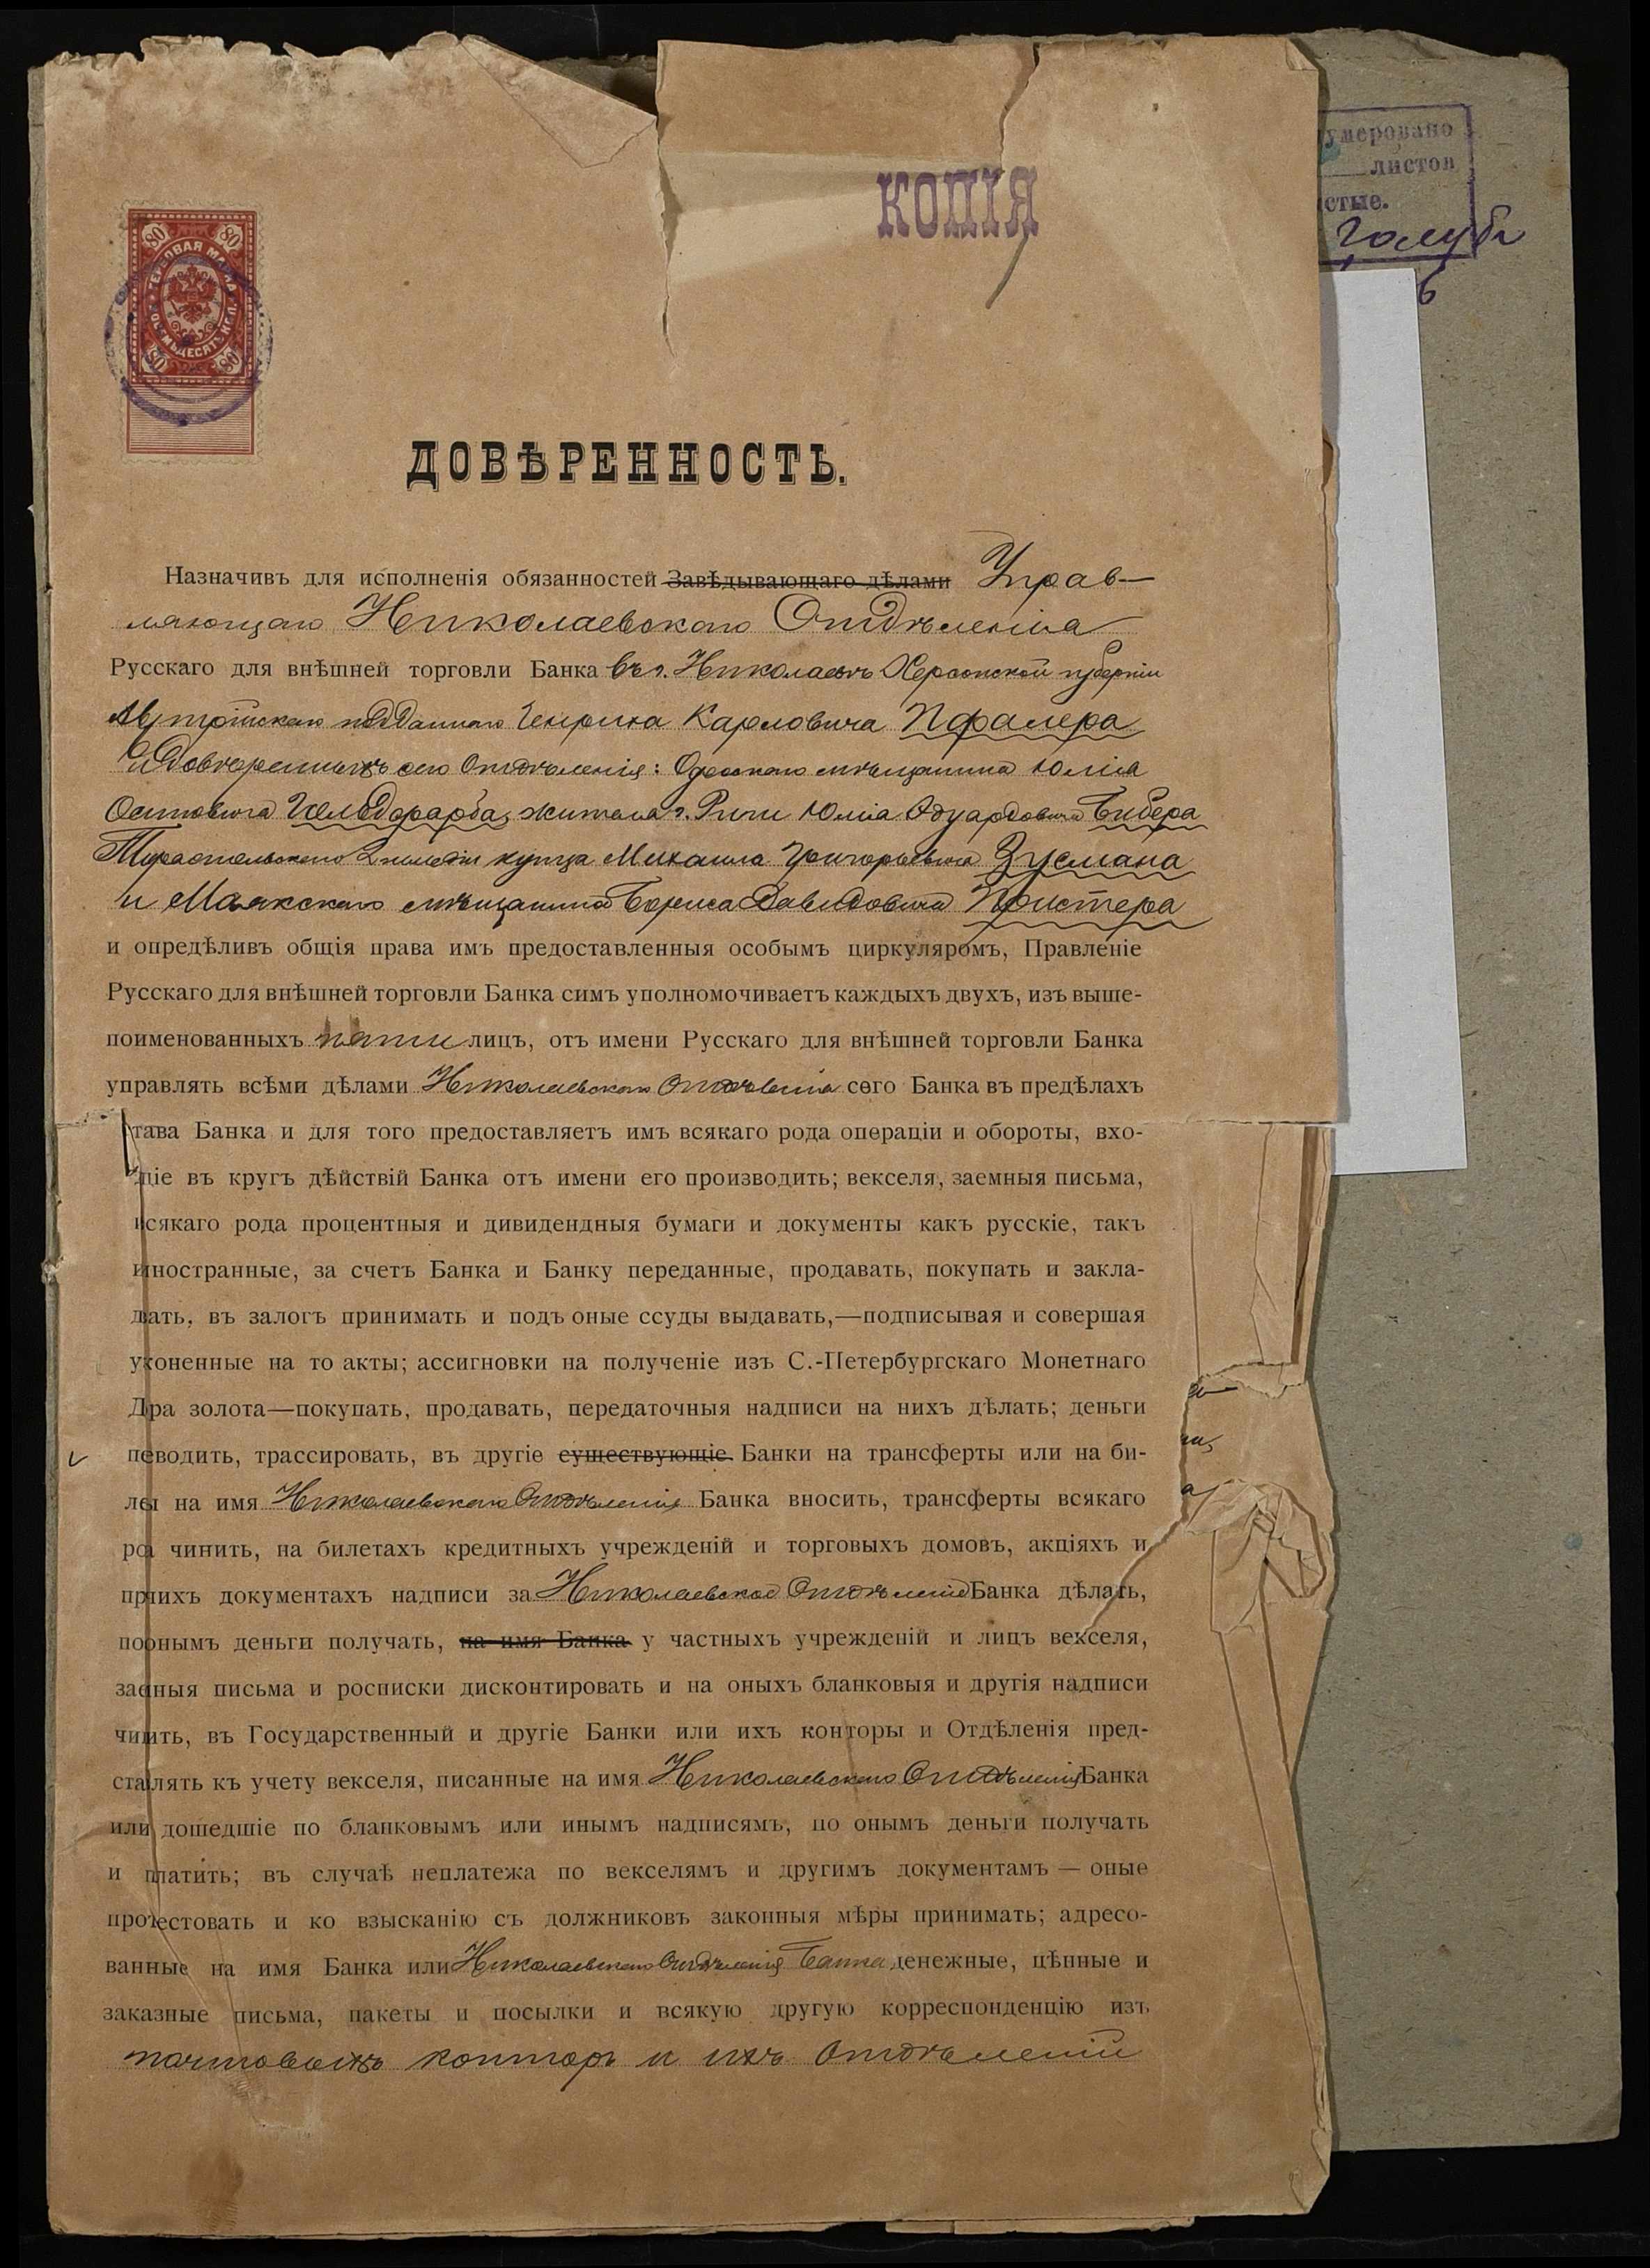 умеровано
листов
стые.
Голубь
КОПІЯ
80 80
ГЕРБОВАЯ МАРКА
ВОСЕМЬДЕСЯТЪ КОП.
80 80
ДОВѢРЕННОСТЬ.
Назначивъ для исполненія обязанностей Завѣдывающаго дѣлами Управ-
ляющаго Николаевскаго Отдѣленія
Русскаго для внѣшней торговли Банка въ г. Николаевъ Херсонской губерніи
Австрійскаго подданнаго Генриха Карловича Пфалера
и довѣренныхъ сего Отдѣленія: Одесскаго мѣщанина Юлія
Осиповича Гельдфарба, жителя г. Риги Юлія Эдуардовича Бибера
Тираспольскаго 2 гильдіи купца Михаила Григорьевича Зусмана
и Маякскаго мѣщанина Бориса Давидовича Пристера
и опредѣливъ общія права имъ предоставленныя особымъ циркуляромъ, Правленіе
Русскаго для внѣшней торговли Банка симъ уполномочиваетъ каждыхъ двухъ, изъ выше-
поименованныхъ пяти лицъ, отъ имени Русскаго для внѣшней торговли Банка
управлять всѣми дѣлами Николаевскаго Отдѣленія сего Банка въ предѣлахъ
тава Банка и для того предоставляетъ имъ всякаго рода операціи и обороты, вхо-
щіе въ кругъ дѣйствій Банка отъ имени его производить; векселя, заемныя письма,
всякаго рода процентныя и дивидендныя бумаги и документы какъ русскіе, такъ
иностранные, за счетъ Банка и Банку переданные, продавать, покупать и закла-
дать, въ залогъ принимать и подъ оные ссуды выдавать,—подписывая и совершая
уконенные на то акты; ассигновки на полученіе изъ С.-Петербургскаго Монетнаго
Дра золота—покупать, продавать, передаточныя надписи на нихъ дѣлать; деньги
певодить, трассировать, въ другіе существующіе Банки на трансферты или на би-
леы на имя Николаевскаго Отдѣленія Банка вносить, трансферты всякаго
роа чинить, на билетахъ кредитныхъ учрежденій и торговыхъ домовъ, акціяхъ и
прчихъ документахъ надписи за Николаевское Отдѣленіе Банка дѣлать,
поонымъ деньги получать, на имя Банка у частныхъ учрежденій и лицъ векселя,
заеныя письма и росписки дисконтировать и на оныхъ бланковыя и другія надписи
чинить, въ Государственный и другіе Банки или ихъ конторы и Отдѣленія пред-
ставлять къ учету векселя, писанные на имя Николаевскаго Отдѣленія Банка
или дошедшіе по бланковымъ или инымъ надписямъ, по онымъ деньги получать
и платить; въ случаѣ неплатежа по векселямъ и другимъ документамъ — оные
протестовать и ко взысканію съ должниковъ законныя мѣры принимать; адресо-
ванные на имя Банка или Николаевскаго Отдѣленія Банка денежные, цѣнные и
заказные письма, пакеты и посылки и всякую другую корреспонденцію изъ
почтовыхъ конторъ и ихъ отдѣленій